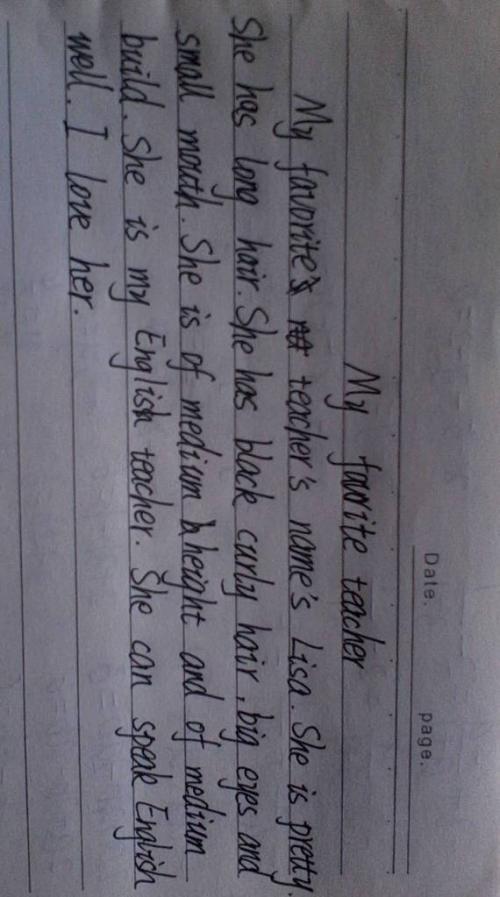 Date. page.
My favrite teacher
My favorite teacher's name's Lisa. She is pretty.
She has long hair. She has black curly hair, big eyes and
small mouth. She is of medium height and of medium
build. She is my English teacher. She can speak English
well. I love her.